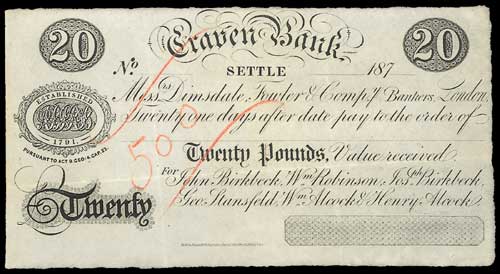 20 Craven Bank, 20
No.
SETTLE 187
Messrs. Dimsdale, Fowler & Compy. Bankers, London,
ESTABLISHED
1791.
PURSUANT TO ACT 9. GEO: 4. CAP. 23.
Twenty one days after date pay to the order of
500
Twenty Pounds, Value received
For John Birkbeck, Wm. Robinson, Josph. Birkbeck,
Geo. Stansfeld, Wm. Alcock & Henry Alcock.
Twenty